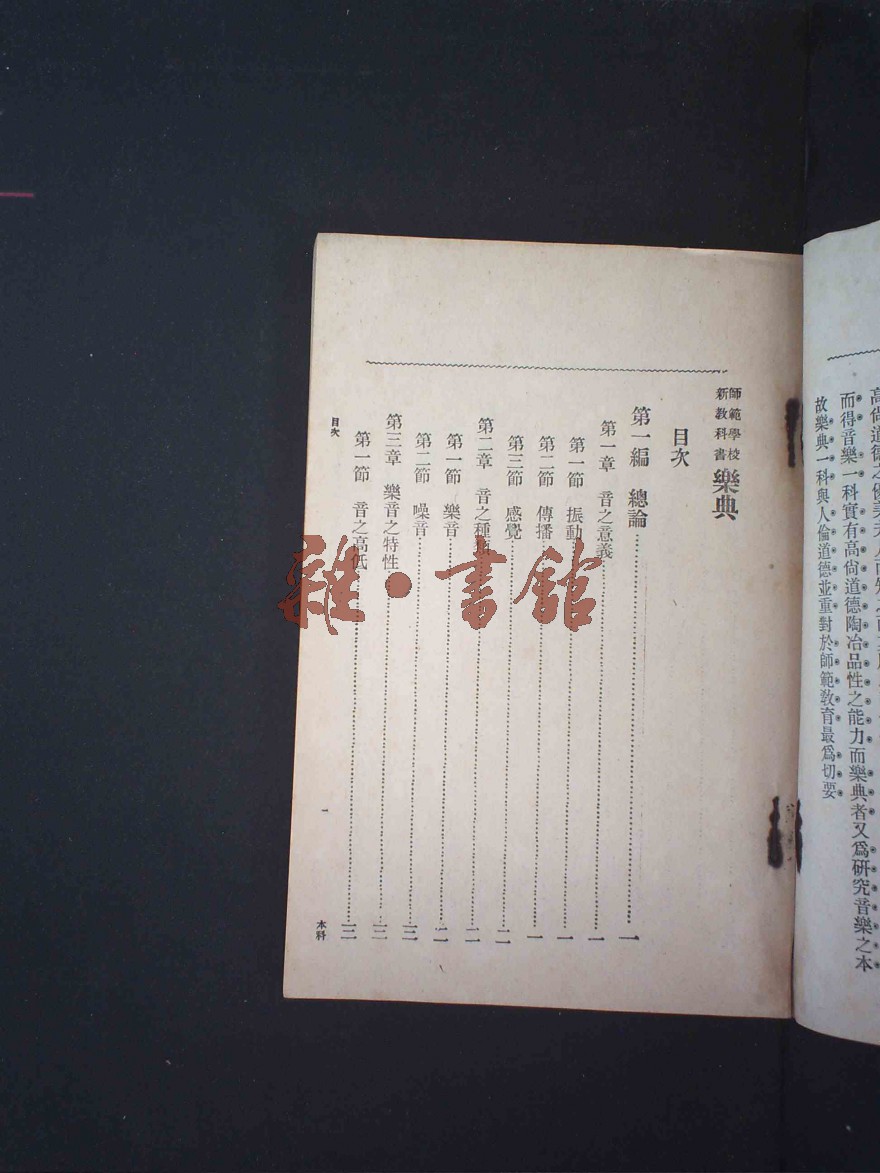 而得音樂一科實有高尙道德陶冶品性之能力而樂典者又爲硏究音樂之本
故樂典一科與人倫道德並重對於師範敎育最爲切要
師範學校
新敎科書
樂典
目次
第一編　總論 一
第一章　音之意義 一
第一節　振動 一
第二節　傳播 一
第三節　感覺 二
第二章　音之種類 二
第一節　樂音 二
第二節　噪音 三
第三章　樂音之特性 三
第一節　音之高低 三
目次
一
本科
雜・書館